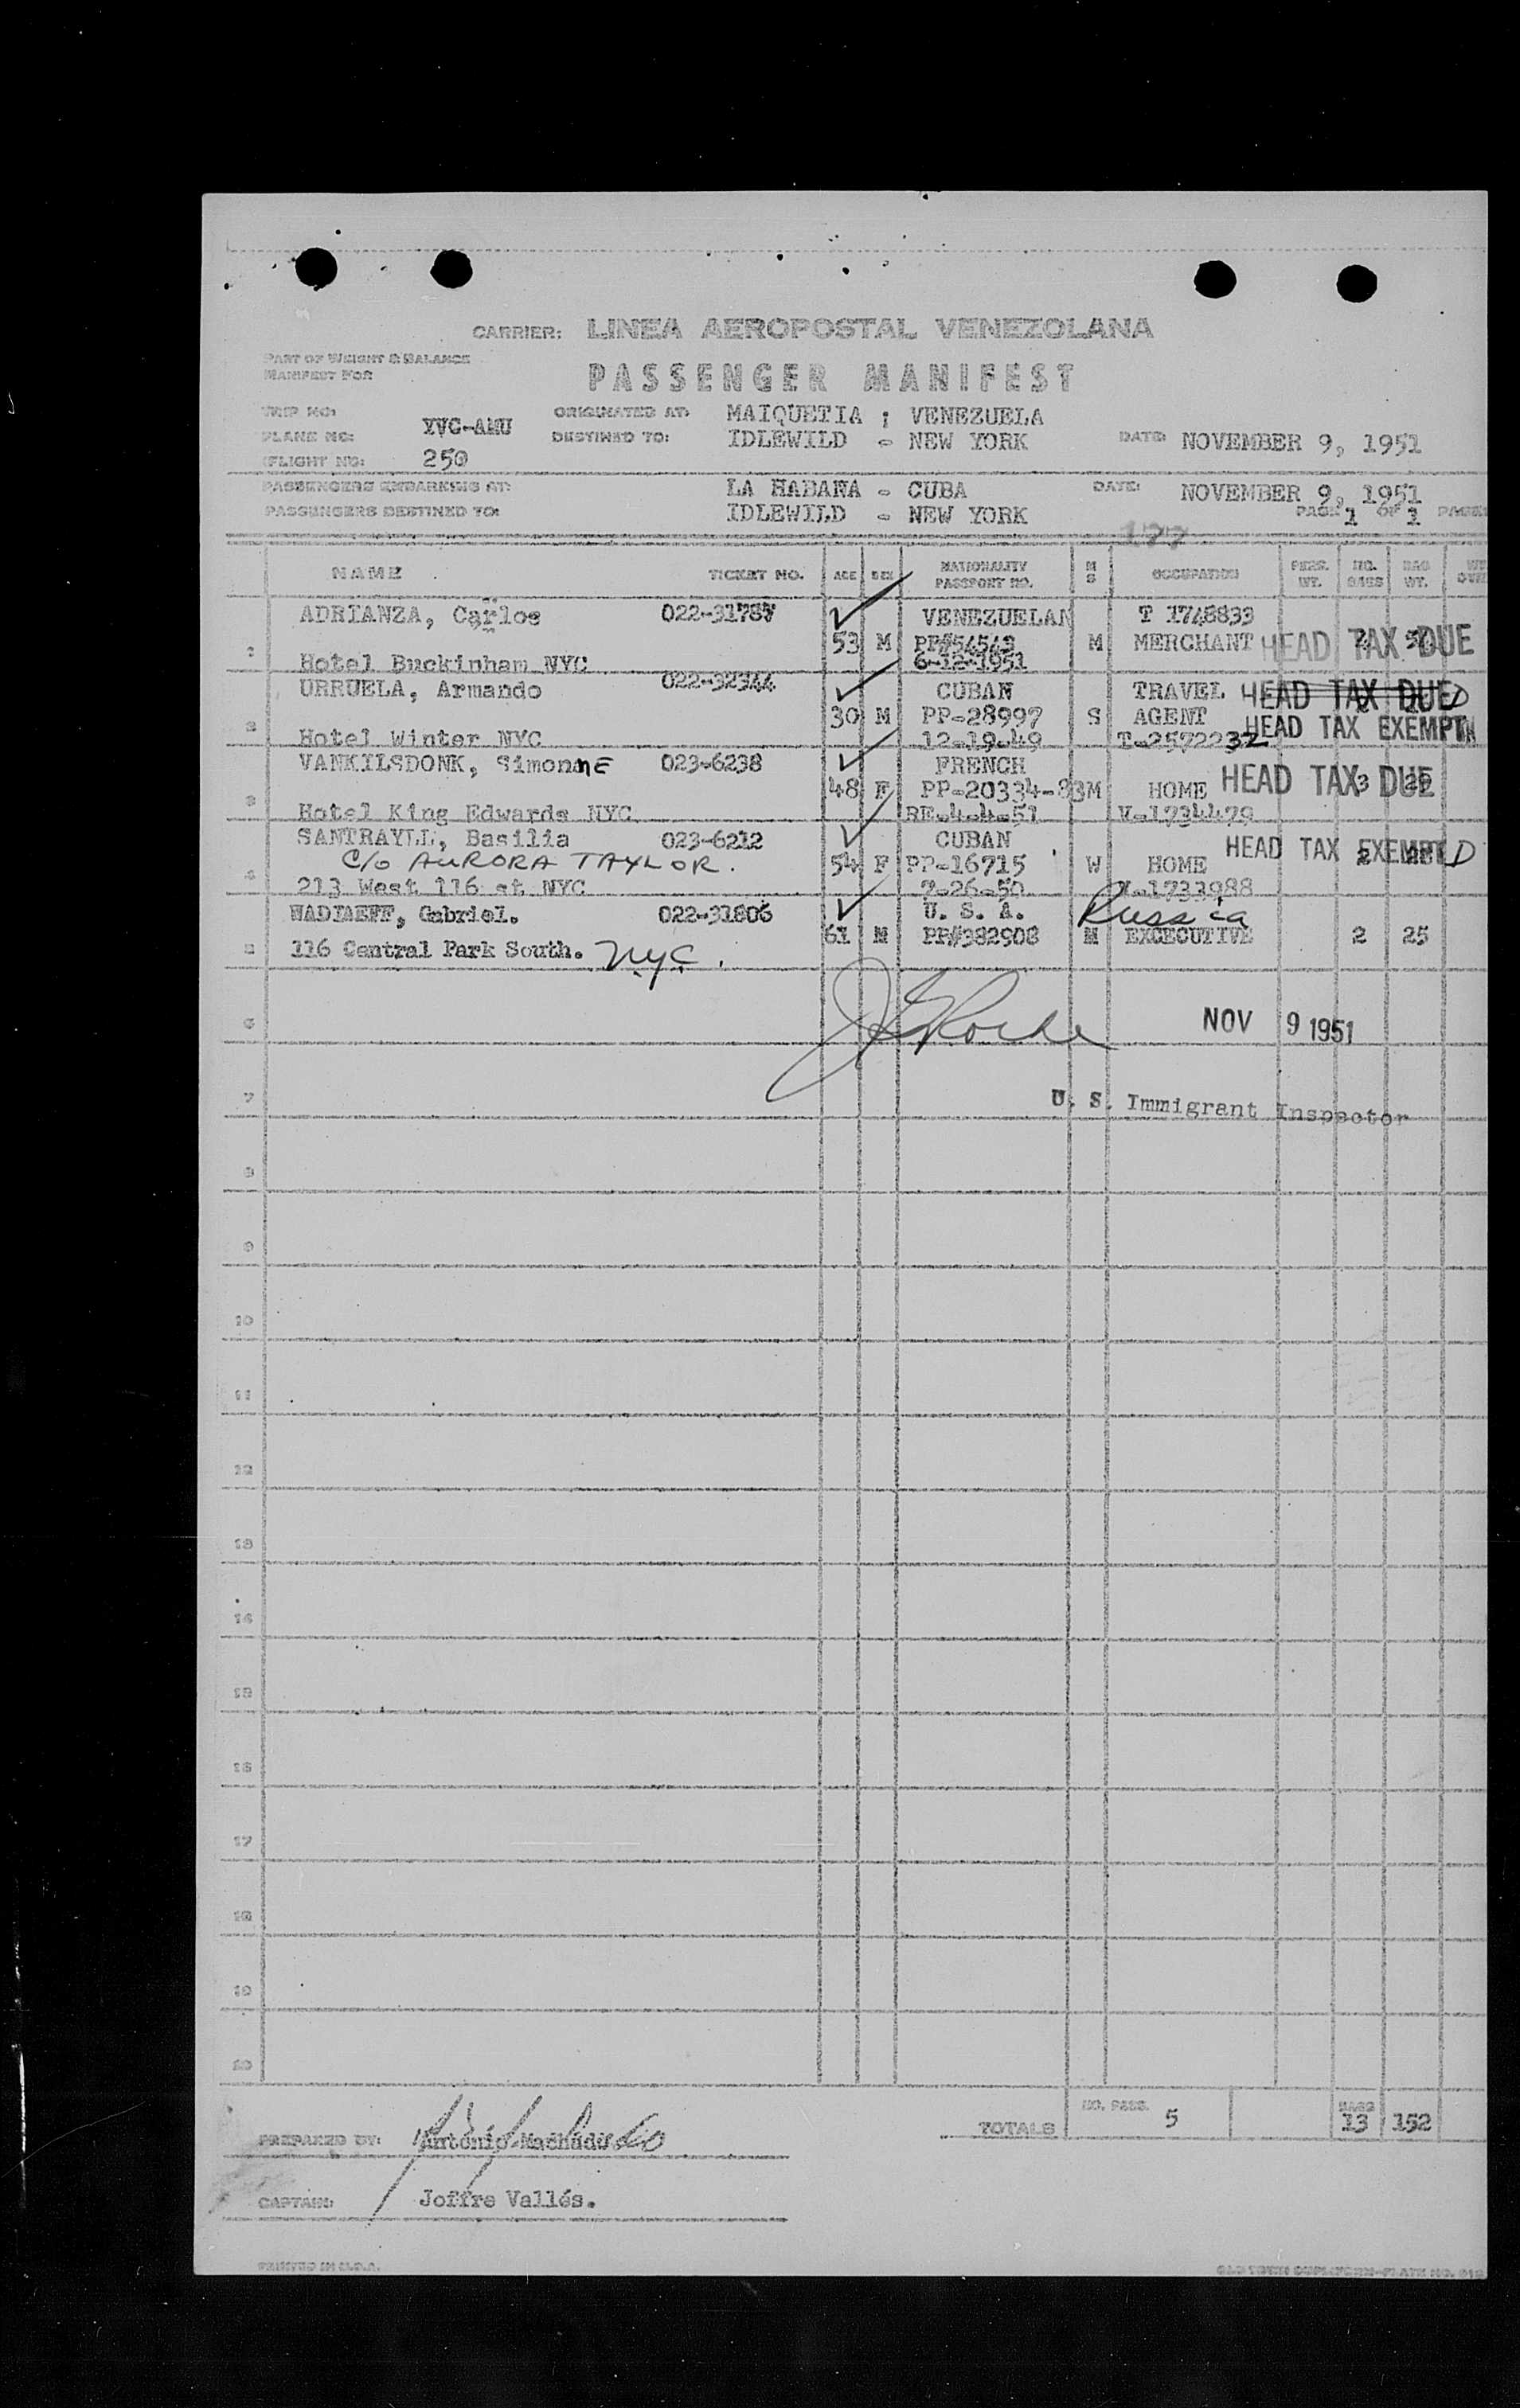 CARRIER: LINEA AEROPOSTAL VENEZOLANA
PART OF WEIGHT & BALANCE
MANIFEST FOR
PASSENGER MANIFEST
TRIP NO:
ORIGINATED AT: MAIQUETIA ; VENEZUELA
PLANE NO: YVC-AMU
DESTINED TO: IDLEWILD - NEW YORK
DATE: NOVEMBER 9, 1951
FLIGHT NO: 250
PASSENGERS EMBARKING AT: LA HABANA - CUBA
DATE: NOVEMBER 9, 1951
PASSENGERS DESTINED TO: IDLEWILD - NEW YORK
PAGE 1 OF 1 PAGES
177
NAME TICKET NO. AGE SEX NATIONALITY PASSPORT NO. M S OCCUPATION PERS. WT. NO. BAGS BAG WT.
ADRIANZA, Carlos 022-31787 VENEZUELAN T 1748833
1 53 M PP#54543 M MERCHANT HEAD TAX DUE
Hotel Buckinham NYC 6-12-1951
URRUELA, Armando 022-32344 CUBAN TRAVEL HEAD TAX DUE D
2 30 M PP-28997 S AGENT HEAD TAX EXEMPT
Hotel Winter NYC 12-19-49 T-2572232
VANKILSDONK, SimonNE 023-6238 FRENCH
3 48 F PP-20334-83 M HOME HEAD TAX DUE 3
Hotel King Edwards NYC RE-4-4-51 V-1734479
SANTRAYLL, Basilia 023-6212 CUBAN HEAD TAX EXEMPT D
C/O AURORA TAYLOR. 54 F PP-16715 W HOME 2 28
4 213 West 116 st NYC 7-26-50 V-1733988
WADIAEFF, Gabriel. 022-31806 U. S. A. Russia
61 M PP#382908 M EXCECUTIVE 2 25
5 116 Central Park South. NYC.
6 NOV 9 1951
7 U. S. Immigrant Inspector
8
9
10
11
12
13
14
15
16
17
18
19
20
TOTALS NO. PASS. 5 BAGS 13 152
PREPARED BY: Antonio Machado
CAPTAIN: Joffre Vallés.
PRINTED IN U.S.A.